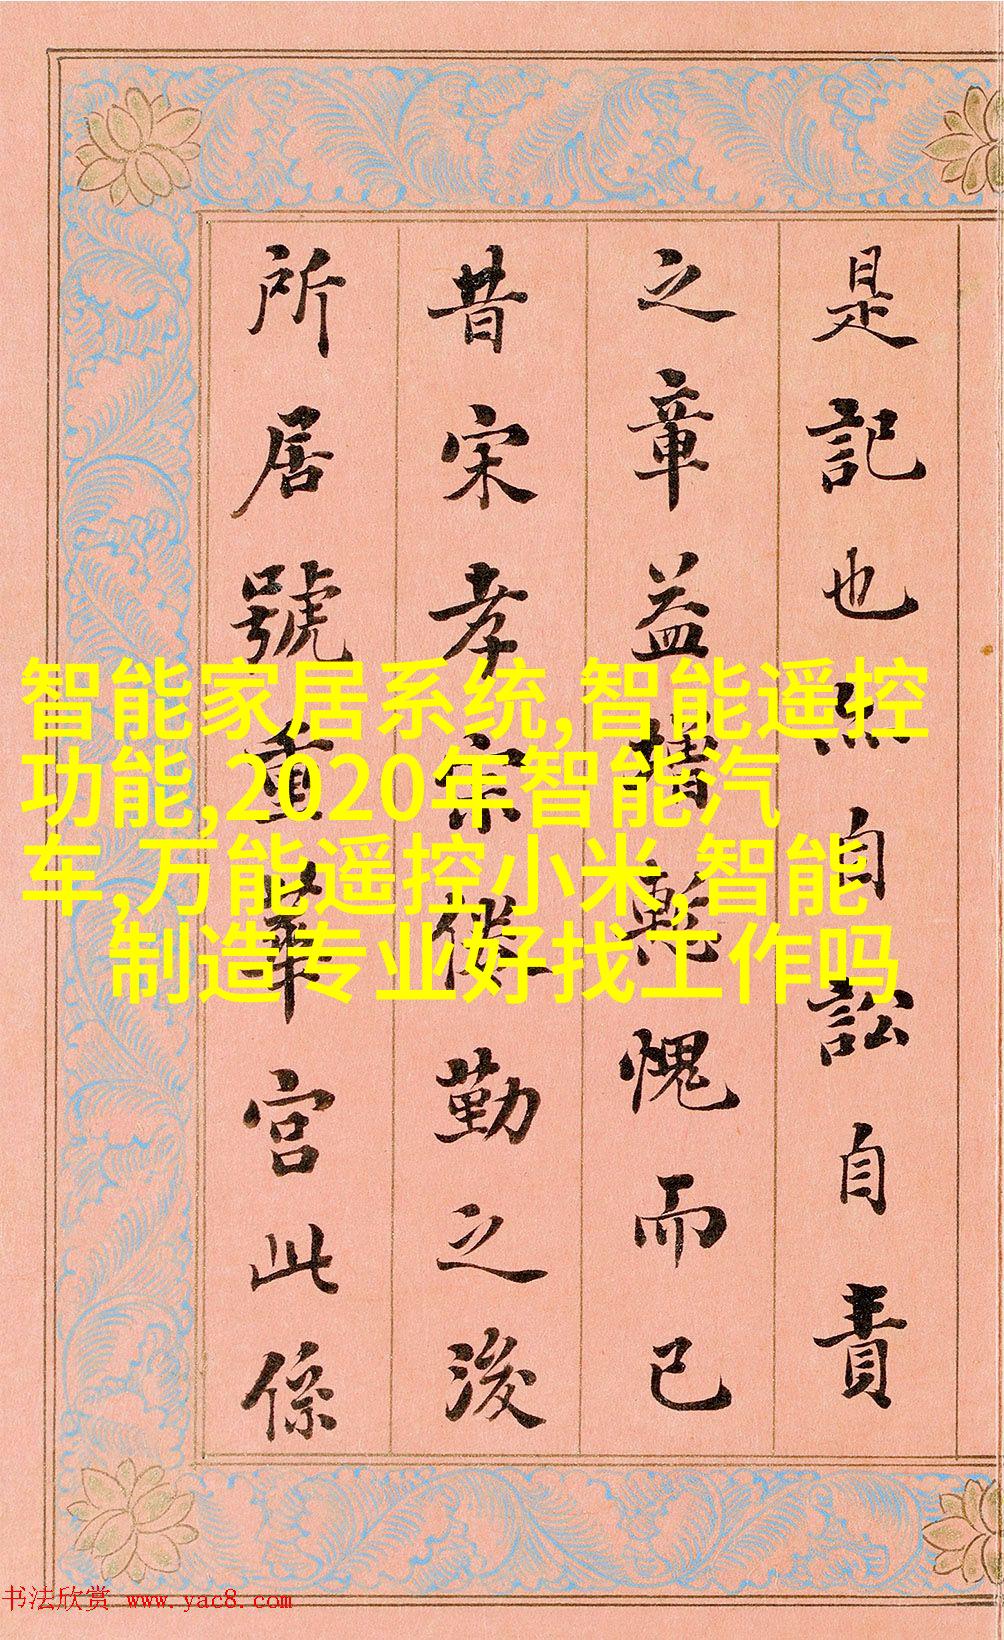 是記也然自訟自責
之章益增慙愧而已
昔宋孝宗倦勤之後
所居號重華宮此係
智能家居系统,智能遥控
功能,2020年智能汽
车,万能遥控小米,智能
制造专业好找工作吗
书法欣赏 www.yac8.com